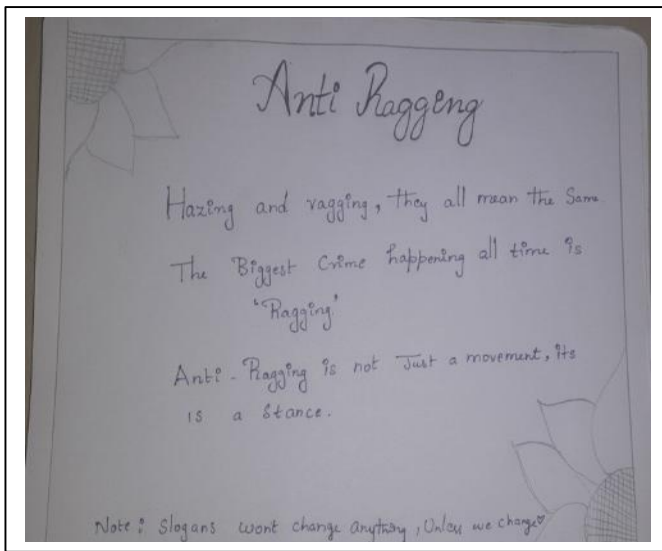 Anti Raggeng
Hazing and ragging, they all mean the Same
The Biggest Crime happening all time is
"Ragging"
Anti - Ragging is not Just a movement, its
is a stance.
Note: Slogans wont change anything, Unless we change